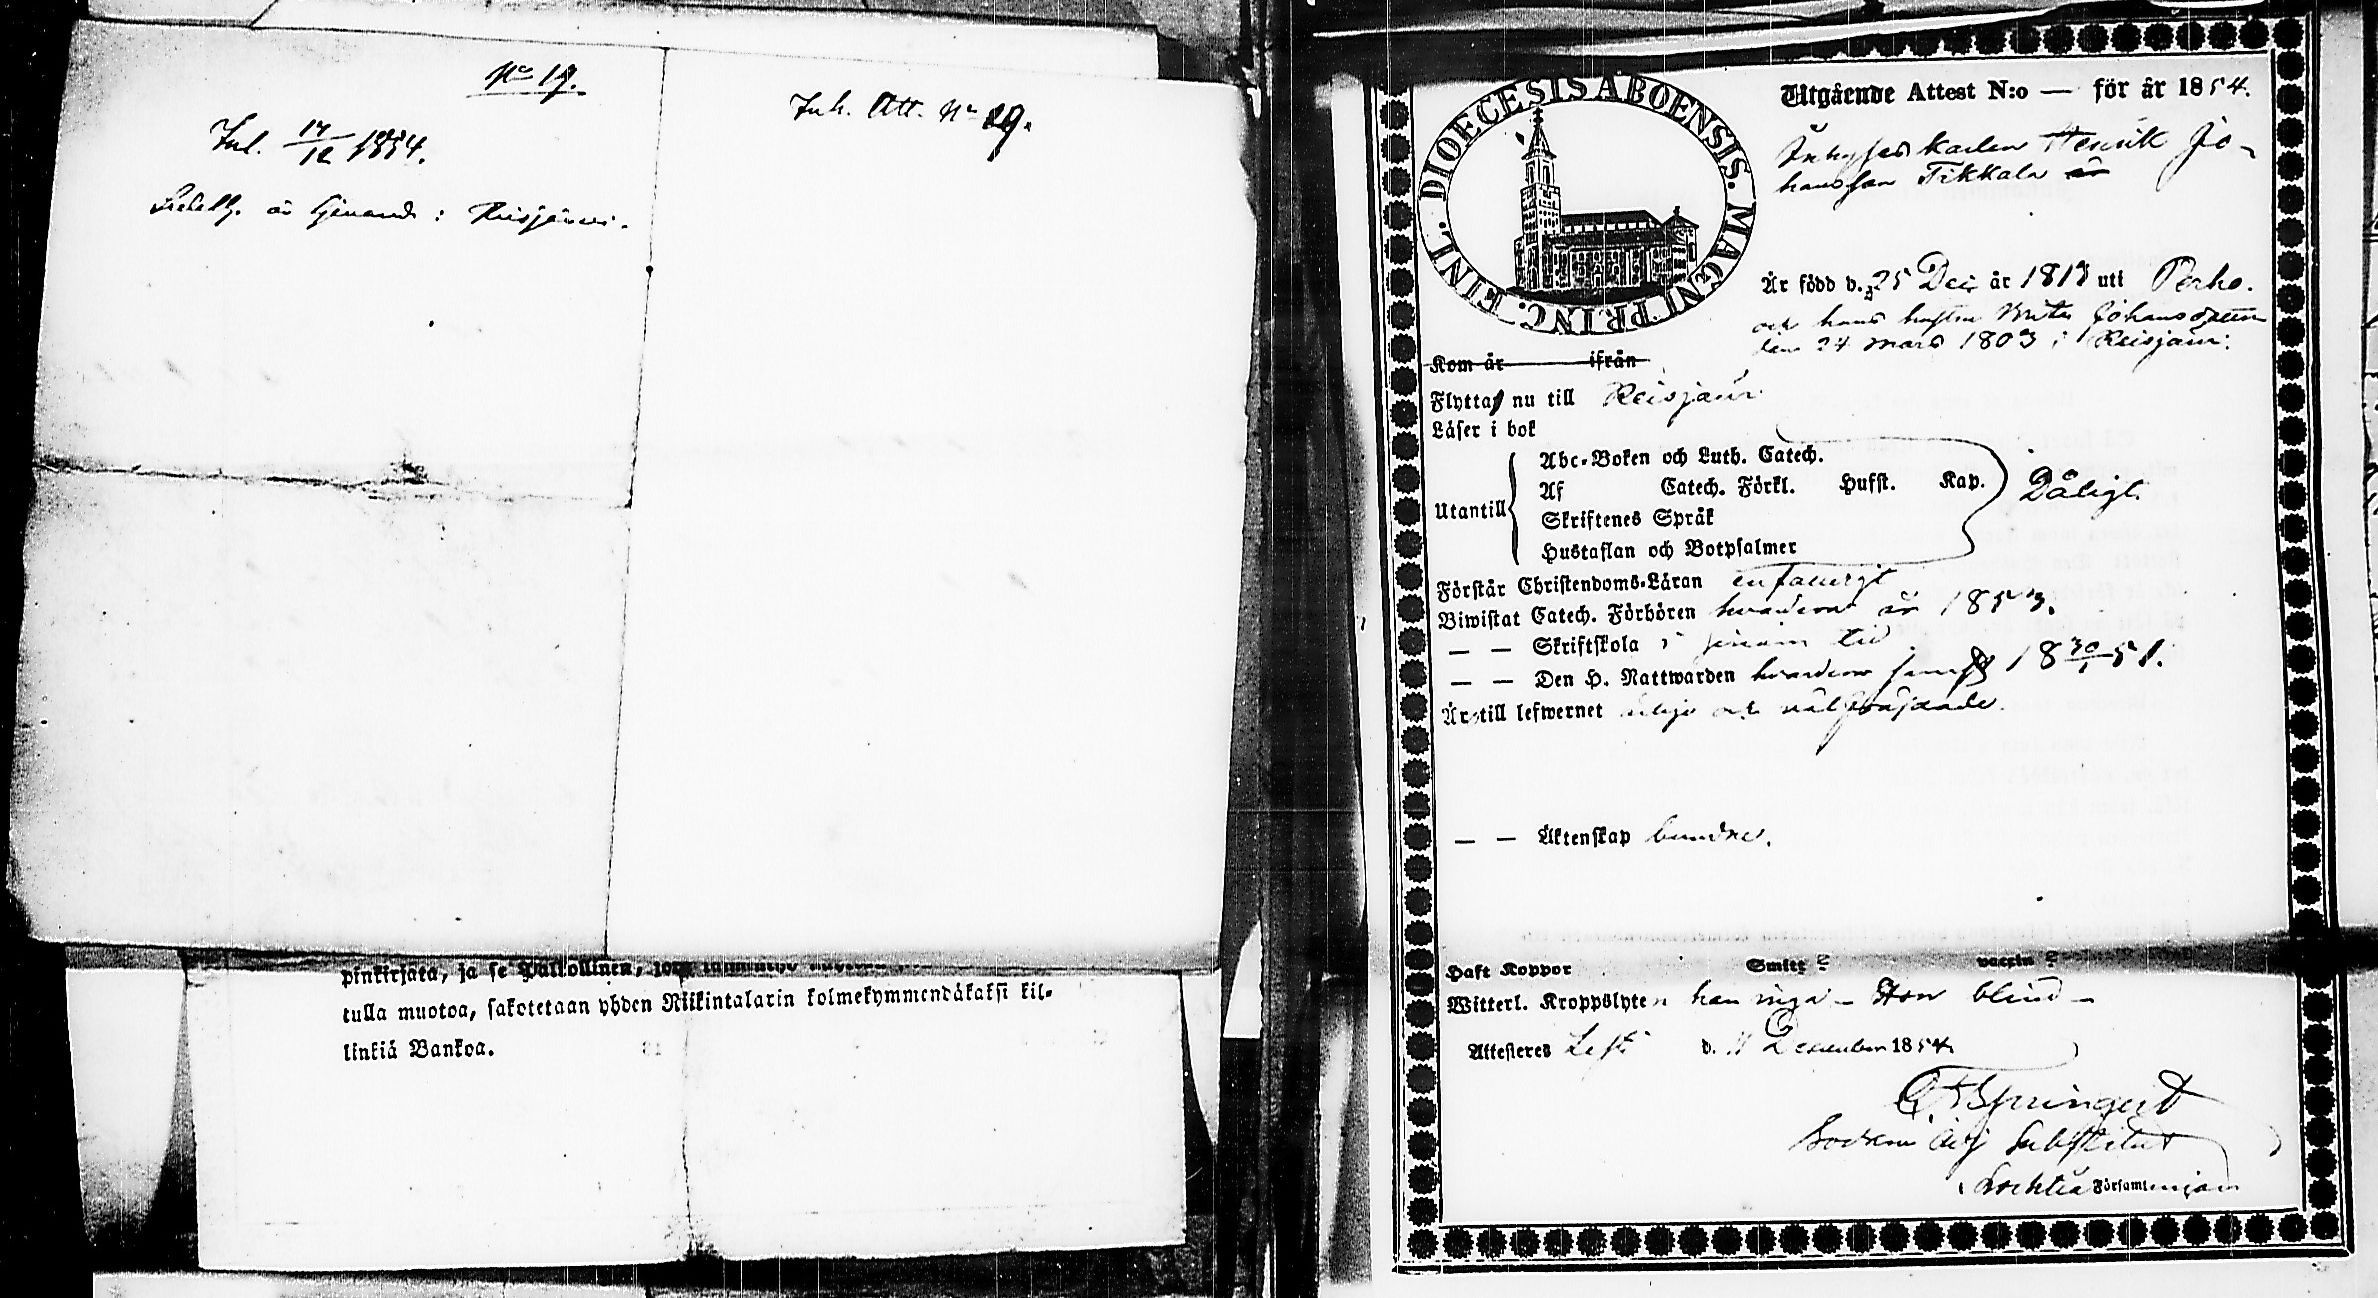 No 19.
Inl. 17/12 1854.
är : Reisjärvi.
Inh. Att. No 29.
pinkirjata, ja se
tulla muotoa, sakotetaan yhden Riikintalarin kolmekymmendäkaksi kil-
linkiä Bankoa.
DIOECESIS ABOENSIS. MAGNI PRINC. FINL.
Utgående Attest N:o — för år 1854.
Inhyses karlen Henrik Jo-
hansson Tikkala är
Är född d. 25 Dec år 1813 uti Perho.
och hans hustru Brita Johansdotter
den 24 Mars 1803 i Reisjärvi.
Kom år ifrån
Flyttar nu till Reisjärvi
Läser i bok
Utantill
Abc-Boken och Luth. Catech.
Af Catech. Förkl. Hufst. Kap.
Dåligt.
Skriftenes Språk
Hustaflan och Botpsalmer
Förstår Christendoms-Läran enfaldigt
Biwistat Catech. Förhören hvardera år 1853.
— — Skriftskola i sinom tid
— — Den H. Nattwarden hvardera 18 30/1 51.
Är till lefwernet ärliga och välfräjdade.
— — Äktenskap bundne.
Haft Koppor Smitt vaccin
Witterl. Kroppslyten han inga — Hon blind —
Attesteres Lesti d. 11 December 1854
Springert
Sockne Adj Substitut
i Lochteå Församlingen